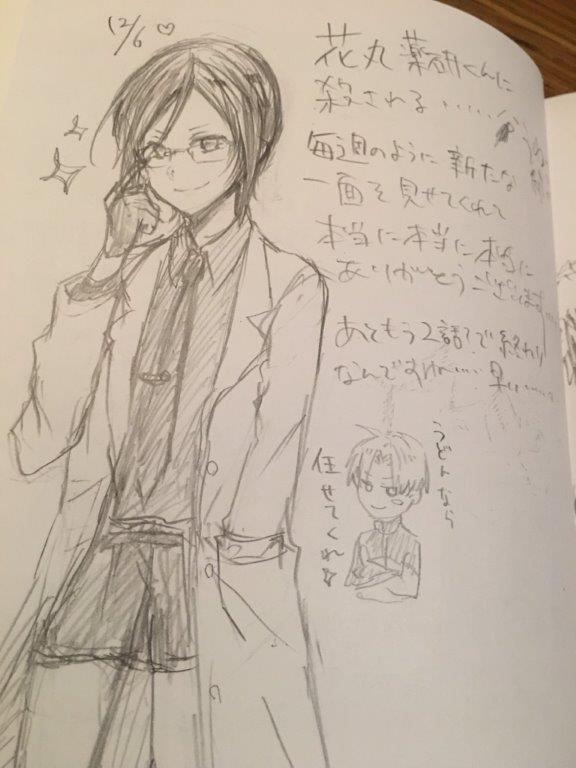 12/6♡
花丸薬研くんに
殺される・・・・・
毎週のように新たな
一面を見せてくれて
本当に本当に本当に
ありがとうございます…
あともう2話?で終わり
なんですけど・・・・早い・・・・。
うどんなら
任せてくれ